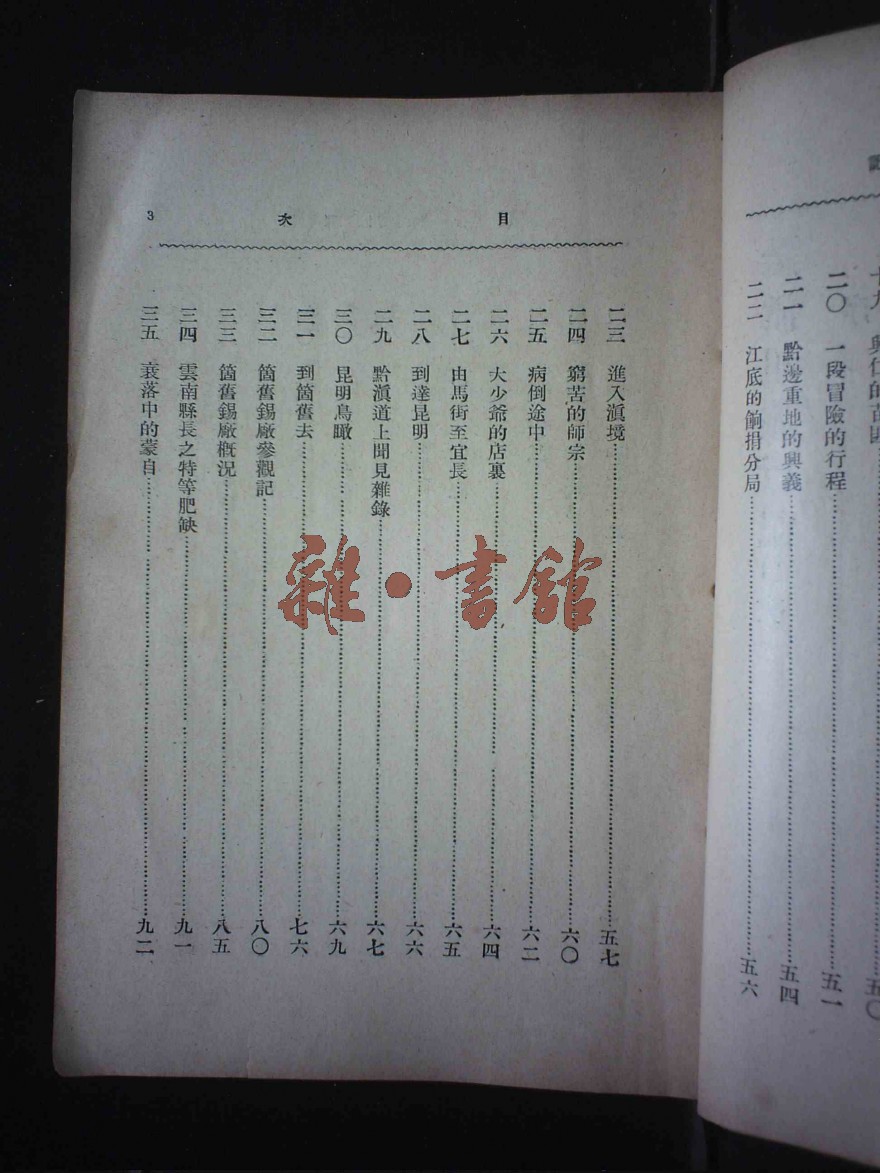 二〇 一段冒險的行程……五一
二一 黔邊重地的興義……五四
二二 江底的餉捐分局……五六
目 次 3
二三 進入滇境……五七
二四 窮苦的師宗……六〇
二五 病倒途中……六二
二六 大少爺的店裏……六四
二七 由馬街至宜良……六五
二八 到達昆明……六六
二九 黔滇道上聞見雜錄……六七
三〇 昆明鳥瞰……六九
三一 到箇舊去……七六
三二 箇舊錫廠參觀記……八〇
三三 箇舊錫廠概況……八五
三四 雲南縣長之特等肥缺……九一
三五 衰落中的蒙自……九二
雜·書館